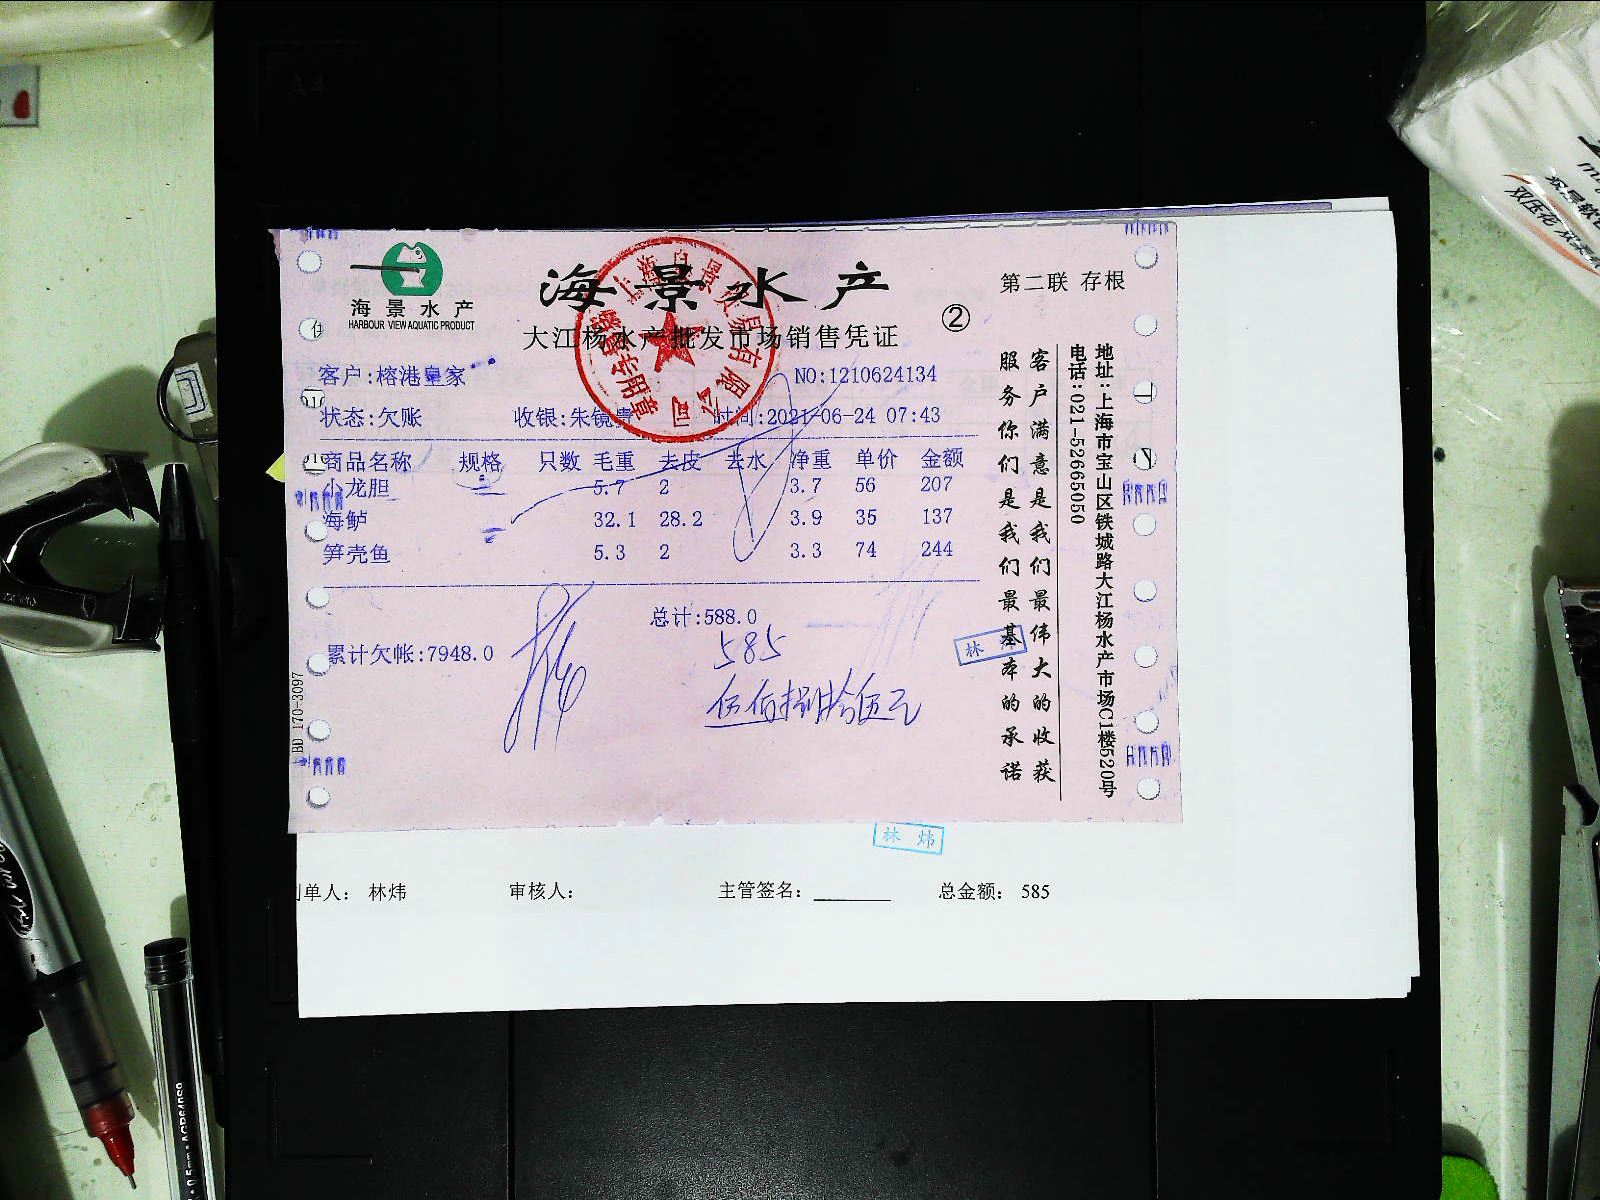 海景水产
HARBOUR VIEW AQUATIC PRODUCT
海景水产
大江杨水产批发市场销售凭证
②
第二联 存根
客户:榕港皇家
NO:1210624134
状态:欠账 收银:朱镜贵 时间:2021-06-24 07:43
商品名称 规格 只数 毛重 去皮 去水 净重 单价 金额
小龙胆 5.7 2 3.7 56 207
海鲈 32.1 28.2 3.9 35 137
笋壳鱼 5.3 2 3.3 74 244
总计:588.0
累计欠帐:7948.0
585
伍佰捌拾伍元
客户满意是我们最伟大的收获
服务你们是我们最基本的承诺
地址:上海市宝山区铁城路大江杨水产市场C1楼520号
电话:021-52665050
BD 170-3097
林
林炜
制单人: 林炜 审核人: 主管签名: 总金额: 585
A4
双压花